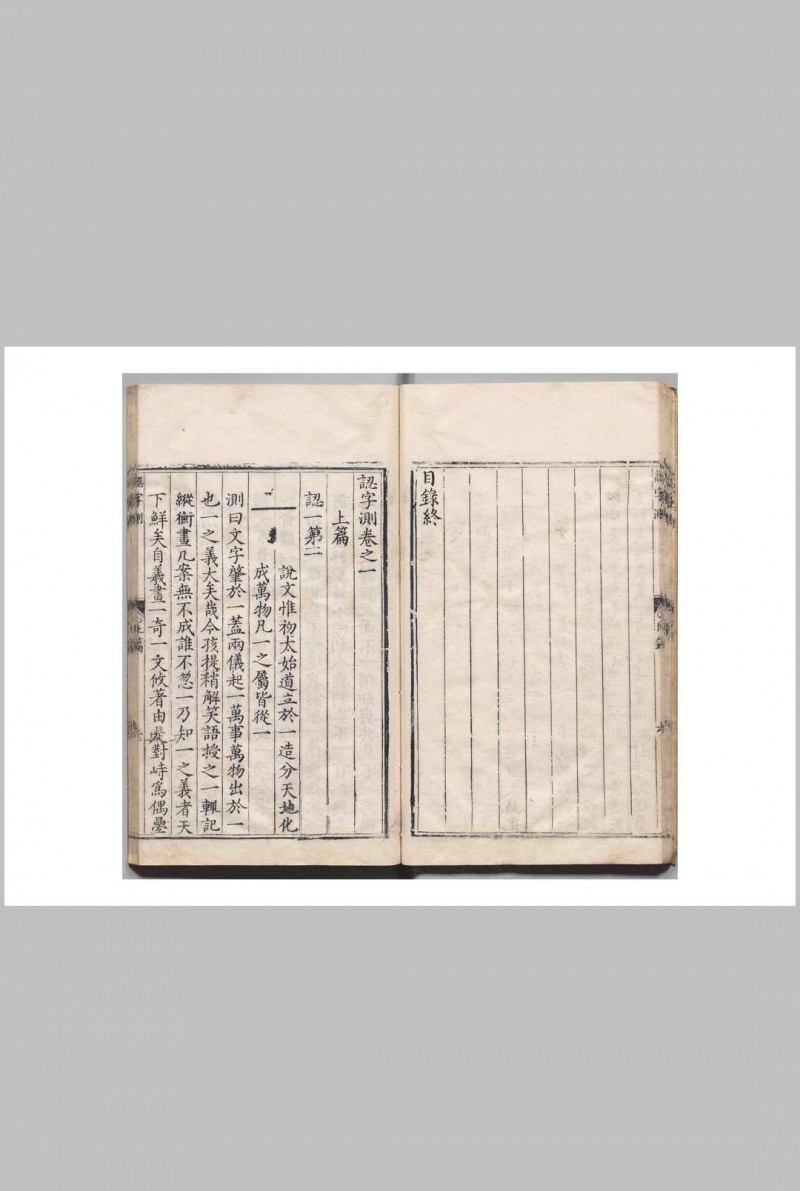 目錄終
認字測卷之一
上篇
認一第二
一
說文惟初太始道立於一造分天地化
成萬物凡一之屬皆從一
測曰文字肇於一蓋兩儀起一萬事萬物出於一
也一之義大矣哉今孩提稍解笑語授之一輒記
縱衡畫几案無不成誰不忽一乃知一之義者天
下鮮矣自羲畫一奇一文攸著由是對峙爲偶疊
認字測
上篇